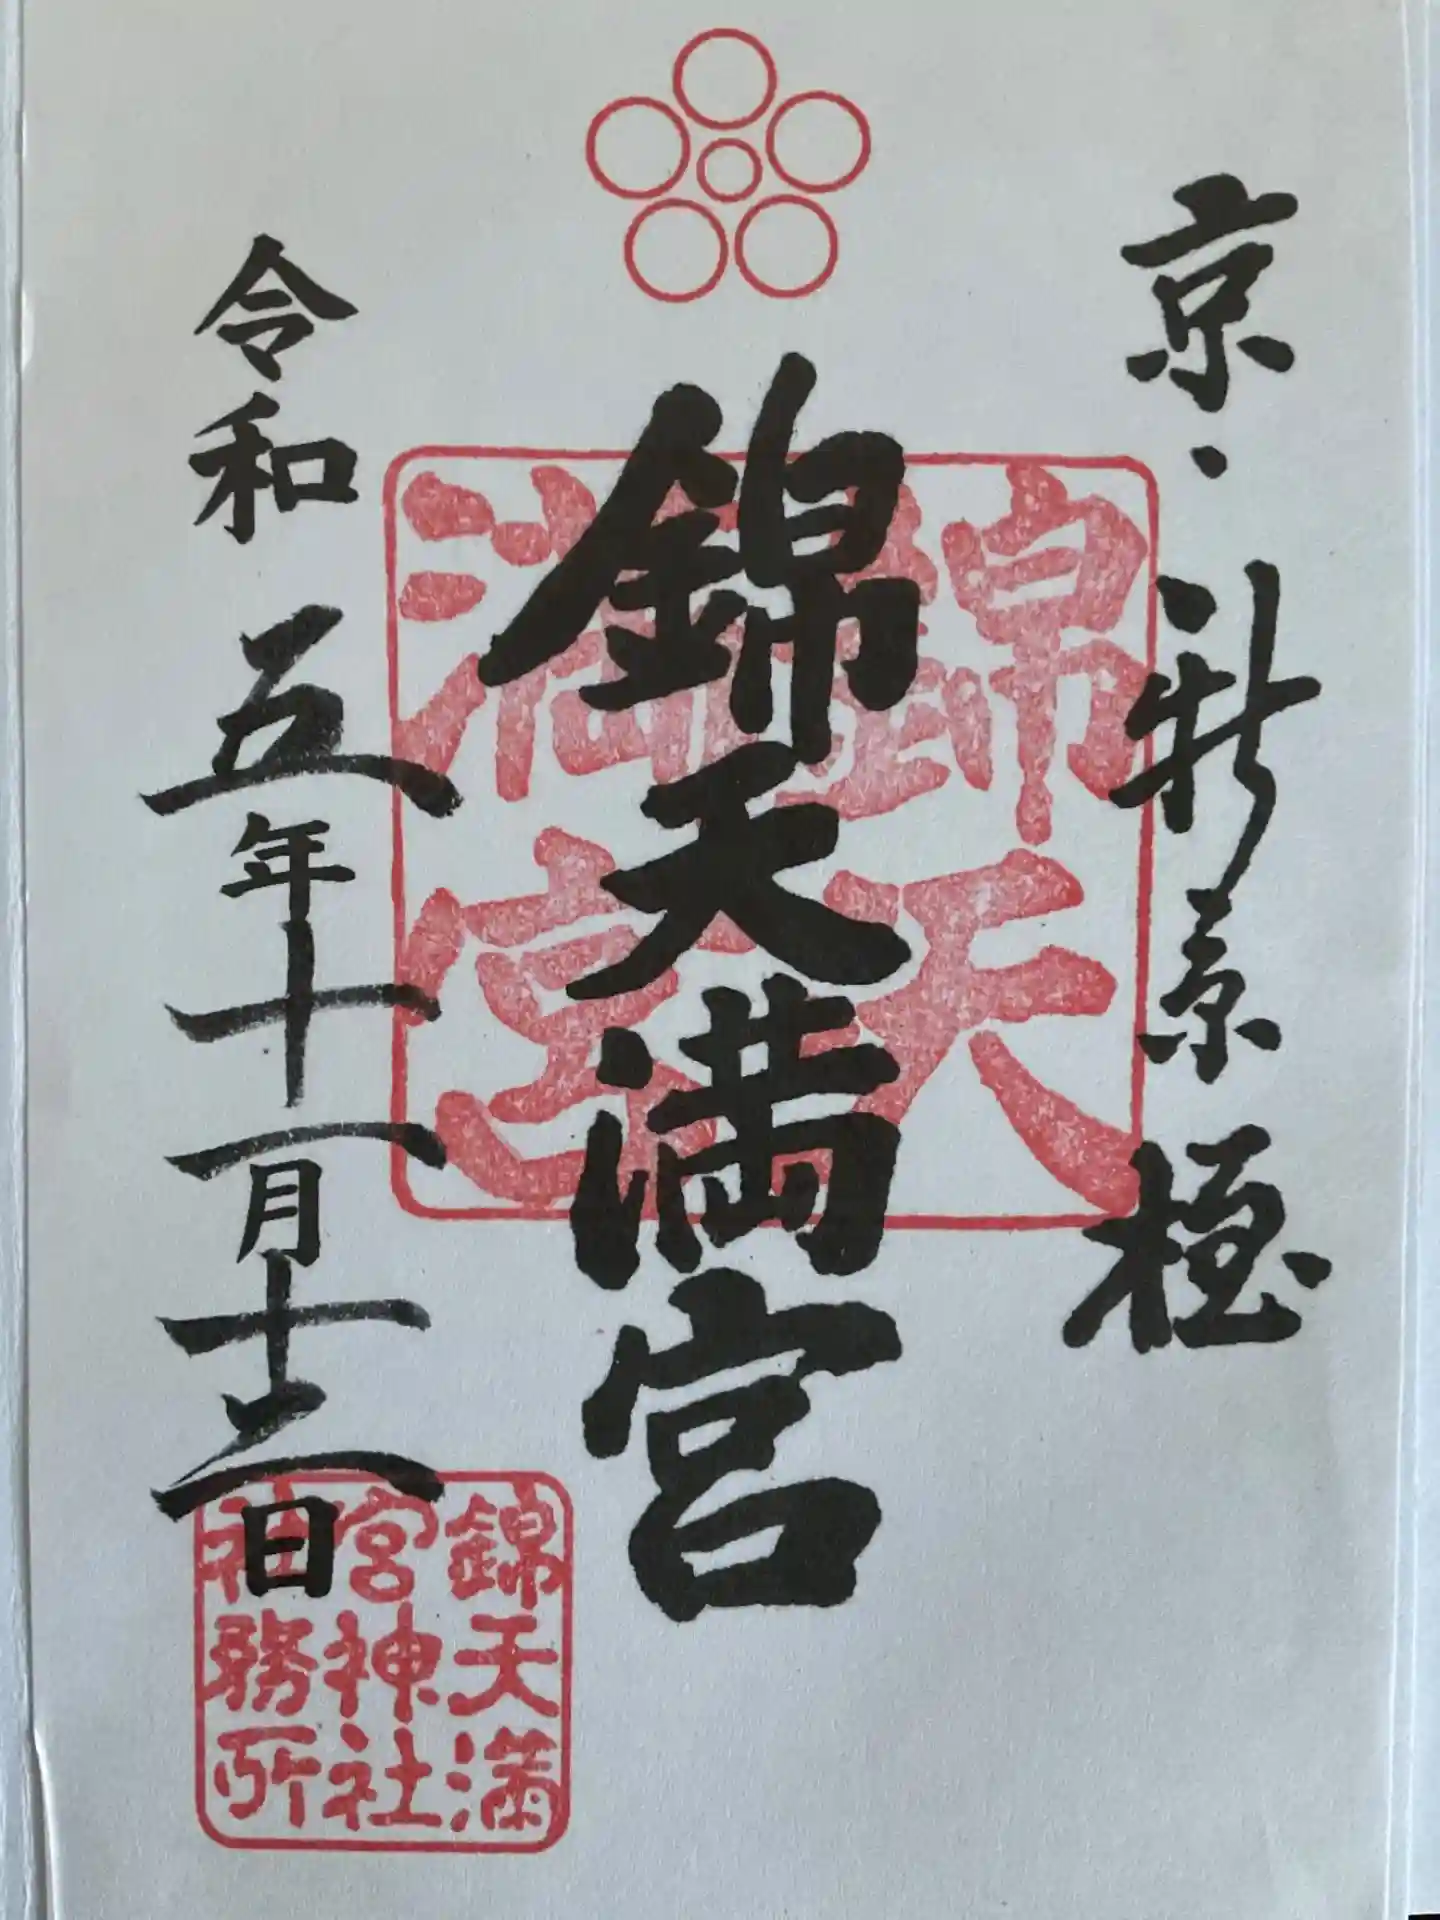 京・新京極
錦天満宮
錦天
満宮
令和五年十一月十二日
錦天満
宮神社
社務所